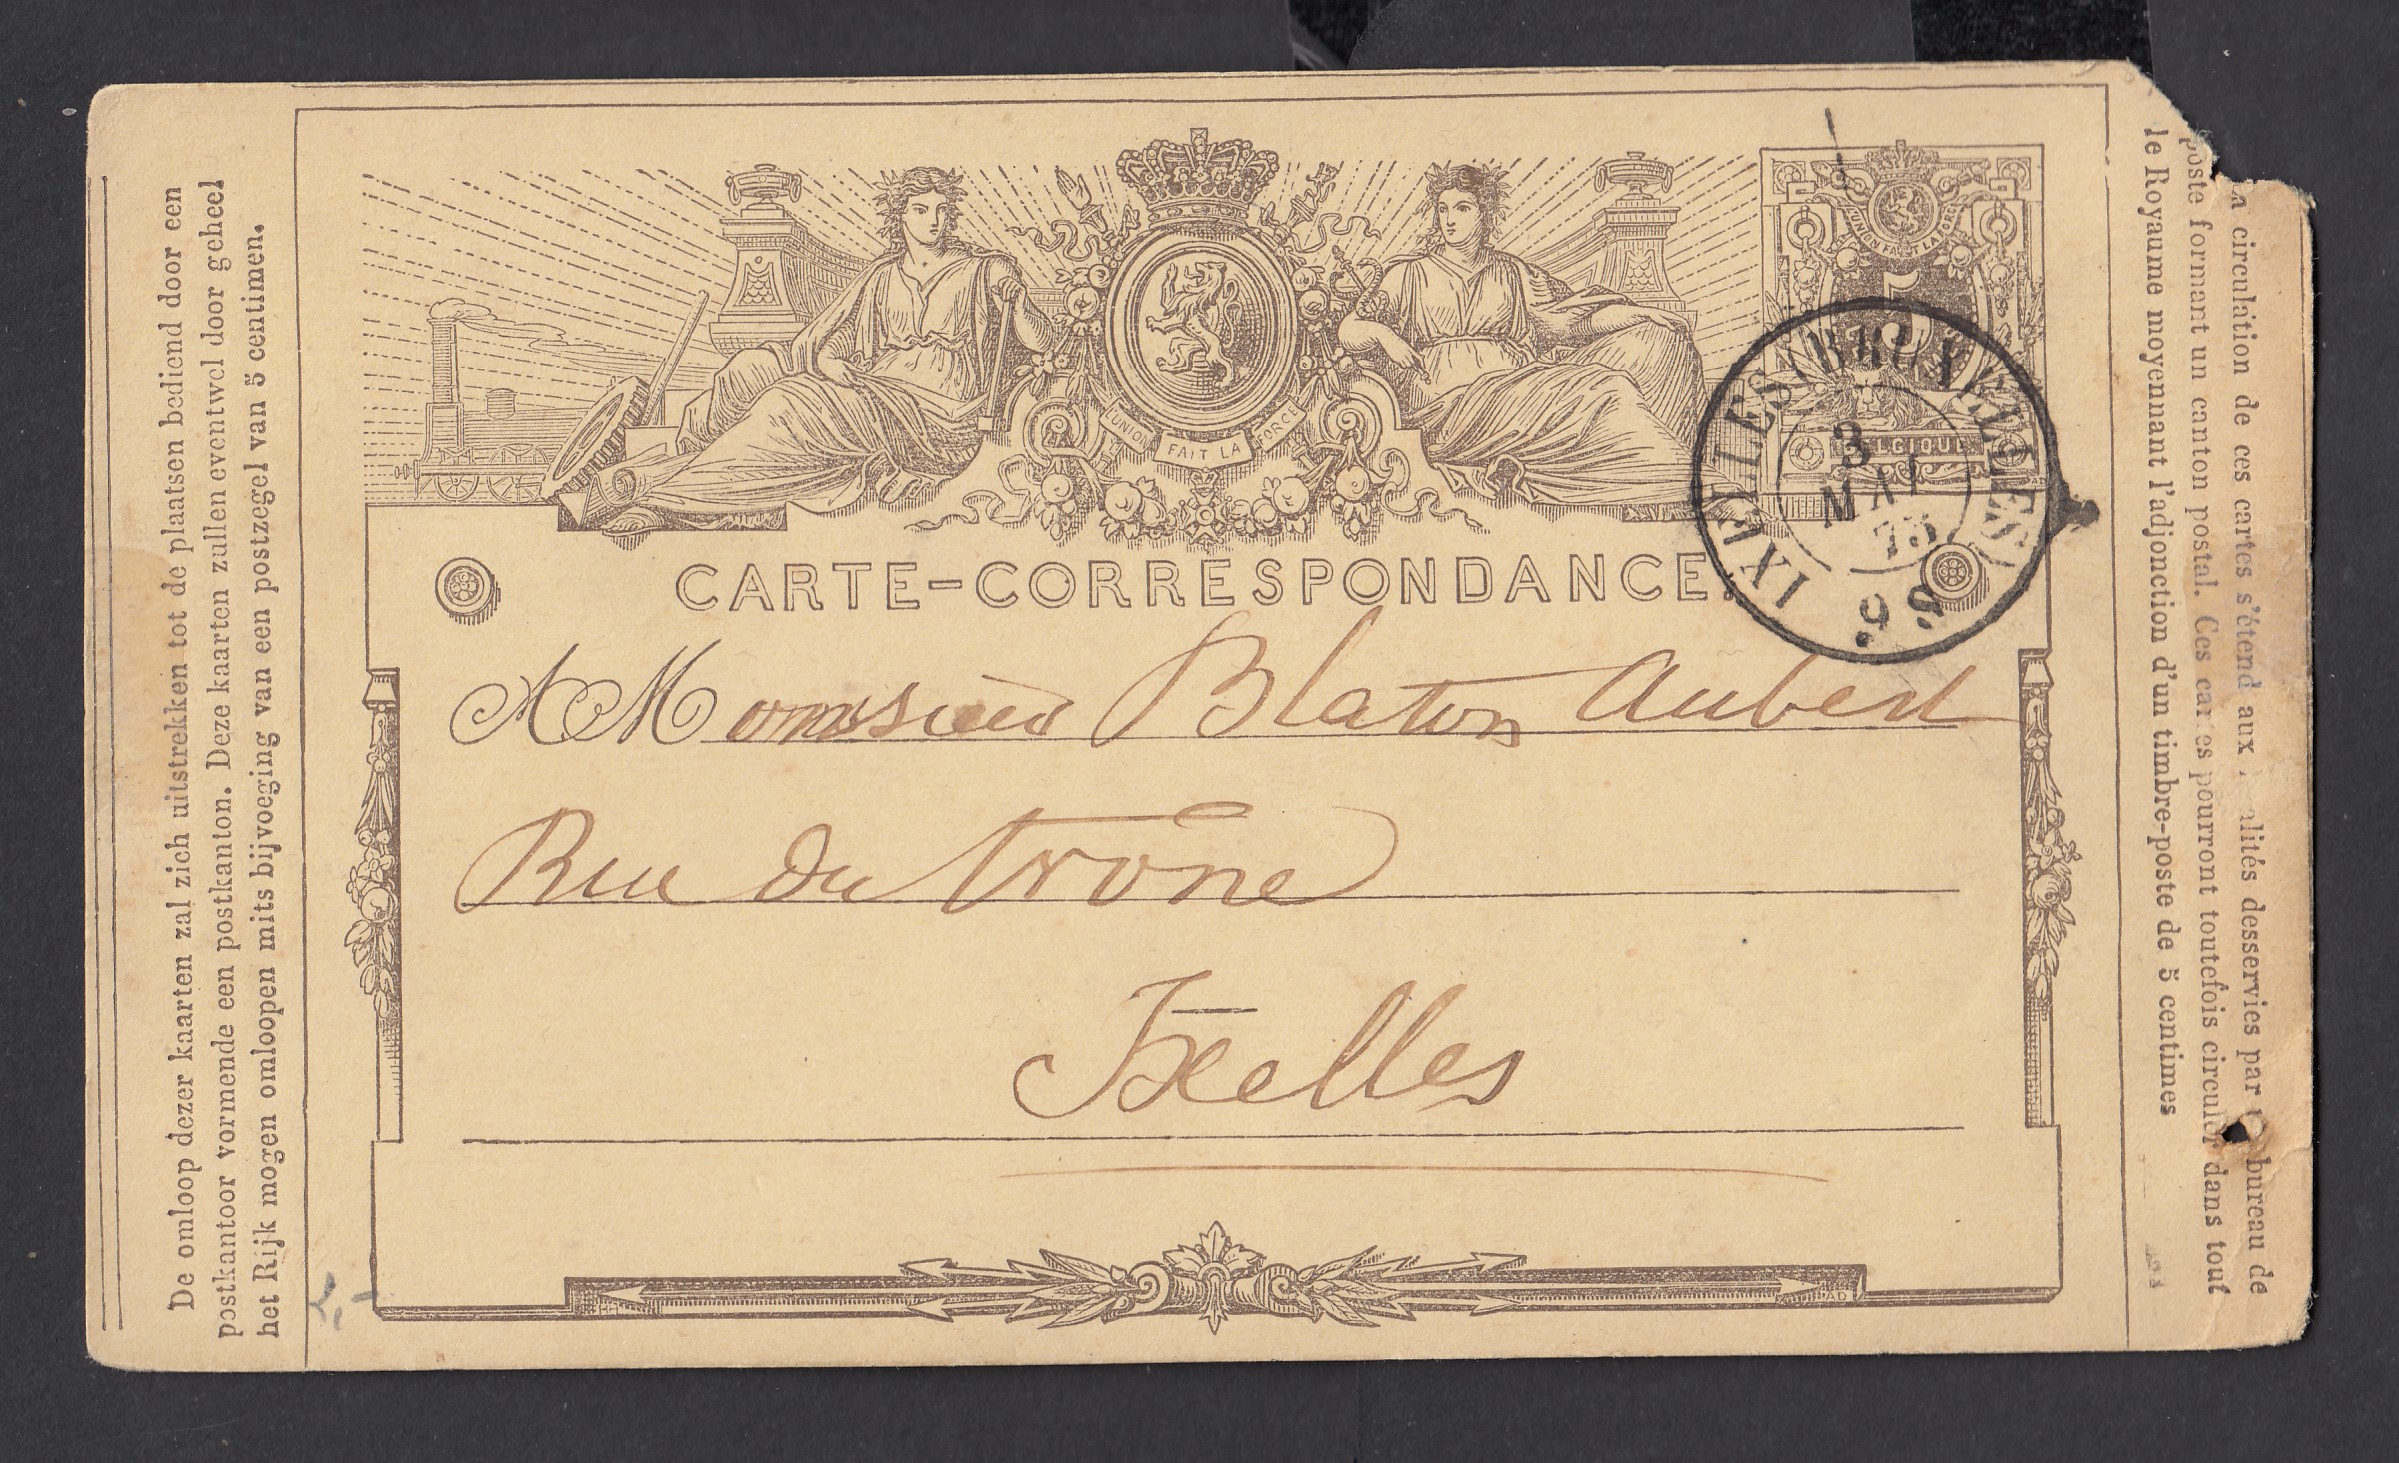 De omloop dezer kaarten zal zich uitstrekken tot de plaatsen bediend door een
postkantoor vormende een postkanton. Deze kaarten zullen eventwel door geheel
het Rijk mogen omloopen mits bijvoeging van een postzegel van 5 centimen.
L'UNION FAIT LA FORCE
L'UNION FAIT LA FORCE
5
BELGIQUE
IXELLES (BRUXELLES)
3
MAI
75
6 S
CARTE-CORRESPONDANCE.
A Monssieur Blaton Aubert
Rue du trône
Ixelles
circulation de ces cartes s'étend aux desservies par bureau de
poste formant un canton postal. Ces cartes pourront toutefois circuler dans tout
le Royaume moyennant l'adjonction d'un timbre-poste de 5 centimes